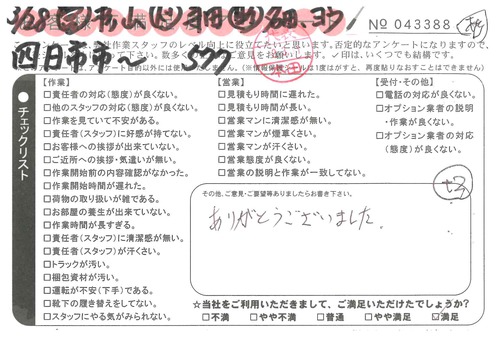 No 043388
四日市市〜
【作業】
□責任者の対応(態度)が良くない。
□他のスタッフの対応(態度)が良くない。
□作業を見ていて不安がある。
□責任者(スタッフ)に好感が持てない。
□お客様への挨拶が出来ていない。
□ご近所への挨拶・気遣いが無い。
□作業開始前の内容確認がなかった。
□作業開始時間が遅れた。
□荷物の取り扱いが雑である。
□お部屋の養生が出来ていない。
□作業時間が長すぎる。
□責任者(スタッフ)に清潔感が無い。
□責任者(スタッフ)が汗くさい。
□トラックが汚い。
□梱包資材が汚い。
□運転が不安(下手)である。
□靴下の履き替えをしてない。
□スタッフにやる気がみられない。
【営業】
□見積もり時間に遅れた。
□見積もり時間が長い。
□営業マンに清潔感が無い。
□営業マンが煙草くさい。
□営業マンが汗くさい。
□営業態度が良くない。
□営業の説明と作業が一致してない。
【受付・その他】
□電話の対応が良くない。
□オプション業者の説明
・作業が良くない。
□オプション業者の対応
(態度)が良くない。
●チェックリスト
その他、ご意見・ご要望等ありましたらお書き下さい。
ありがとうございました。
☆当社をご利用いただきまして、ご満足いただけたでしょうか?
□不満 □やや不満 □普通 □やや満足 ☑満足